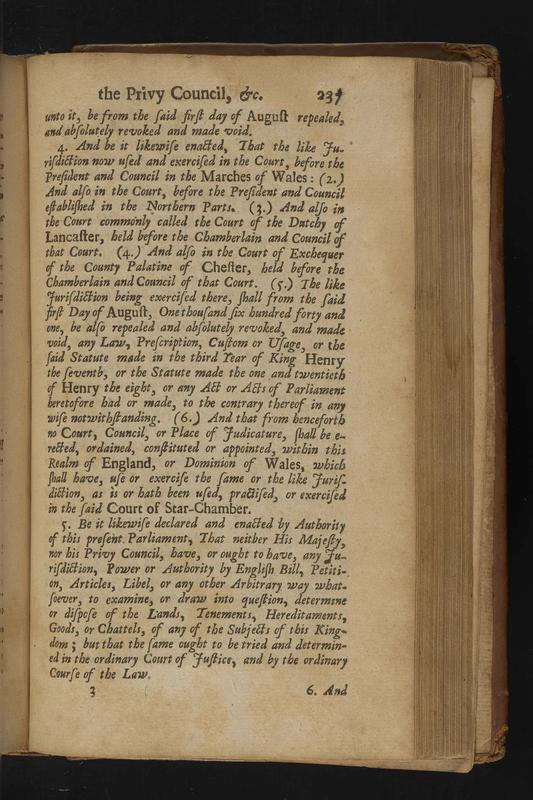 the Privy Council, &c. 237
unto it, be from the ſaid firſt day of Auguſt repealed,
and abſolutely revoked and made void.
4. And be it likewiſe enacted, That the like Ju-
riſdiction now uſed and exerciſed in the Court, before the
Preſident and Council in the Marches of Wales: (2.)
And alſo in the Court, before the Preſident and Council
eſtabliſhed in the Northern Parts. (3.) And alſo in
the Court commonly called the Court of the Dutchy of
Lancaſter, held before the Chamberlain and Council of
that Court. (4.) And alſo in the Court of Exchequer
of the County Palatine of Cheſter, held before the
Chamberlain and Council of that Court. (5.) The like
Juriſdiction being exerciſed there, ſhall from the ſaid
firſt Day of Auguſt, One thouſand ſix hundred forty and
one, be alſo repealed and abſolutely revoked, and made
void, any Law, Preſcription, Cuſtom or Uſage, or the
ſaid Statute made in the third Year of King Henry
the ſeventh, or the Statute made the one and twentieth
of Henry the eight, or any Act or Acts of Parliament
heretofore had or made, to the contrary thereof in any
wiſe notwithſtanding. (6.) And that from henceforth
no Court, Council, or Place of Judicature, ſhall be e-
rected, ordained, conſtituted or appointed, within this
Realm of England, or Dominion of Wales, which
ſhall have, uſe or exerciſe the ſame or the like Juriſ-
diction, as is or hath been uſed, practiſed, or exerciſed
in the ſaid Court of Star-Chamber.
5. Be it likewiſe declared and enacted by Authority
of this preſent Parliament, That neither His Majeſty,
nor his Privy Council, have, or ought to have, any Ju-
riſdiction, Power or Authority by Engliſh Bill, Petiti-
on, Articles, Libel, or any other Arbitrary way what-
ſoever, to examine, or draw into queſtion, determine
or diſpoſe of the Lands, Tenements, Hereditaments,
Goods, or Chattels, of any of the Subjects of this King-
dom; but that the ſame ought to be tried and determin-
ed in the ordinary Court of Juſtice, and by the ordinary
Courſe of the Law.
3 6. And